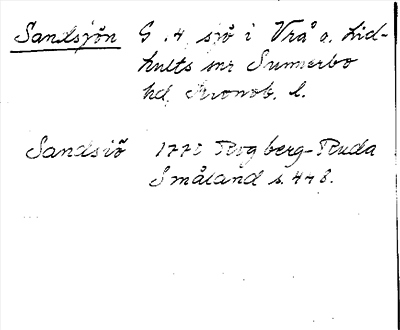 Sandsjön G .4, sjö i Vrå o. Lid-
hults snr Sunnerbo
hd, Kronob. l.
Sandsiö 1770 Rogberg-Ruda
Småland s. 448.